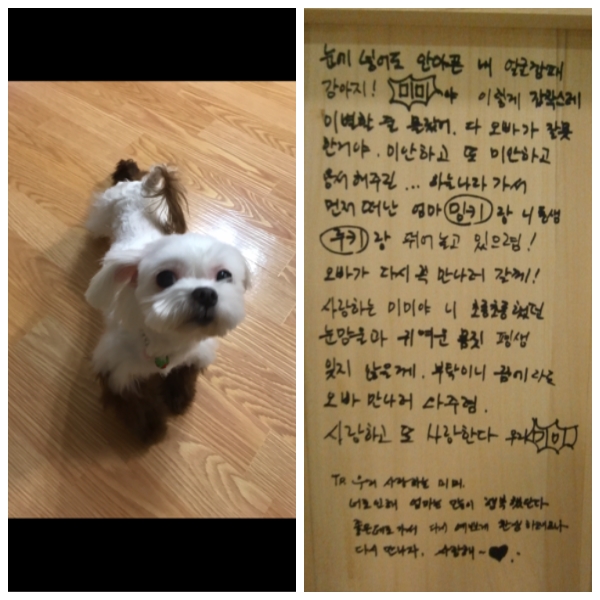 눈에 넣어도 안아픈 내
강아지! 미미야 이렇게 갑작스레
이별할 줄 몰랐어. 다 오빠가 잘못
한거야. 미안하고 또 미안하고
용서해주길... 하늘나라 가서
먼저 떠난 엄마 밍키랑 니 동생
쿠키랑 뛰어 놀고 있으렴!
오빠가 다시 꼭 만나러 갈께!
사랑하는 미미야 니 초롱초롱 했던
눈망울과 귀여운 몸짓 평생
잊지 않을께. 부탁이니 꿈에라도
오빠 만나러 와주렴.
사랑하고 또 사랑한다 우리 미미
우리 사랑하는 미미.
너로인해 엄마는 많이 행복했단다
좋은데로 가서 다시 예쁘게 환생하려무나
다시 만나자. 사랑해~ ♥